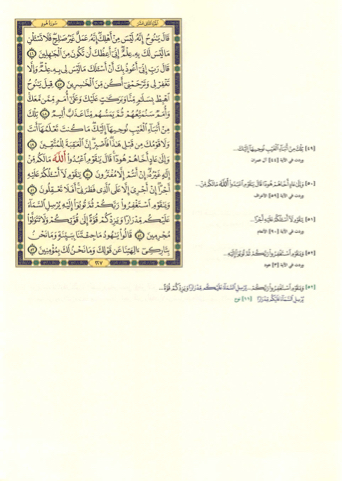 قَالَ يَـٰنُوحُ إِنَّهُۥ لَيْسَ مِنْ أَهْلِكَ إِنَّهُۥ عَمَلٌ غَيْرُ صَـٰلِحٍ فَلَا تَسْـَٔلْنِ
مَا لَيْسَ لَكَ بِهِۦ عِلْمٌ إِنِّىٓ أَعِظُكَ أَن تَكُونَ مِنَ ٱلْجَـٰهِلِينَ ٤٦
قَالَ رَبِّ إِنِّىٓ أَعُوذُ بِكَ أَنْ أَسْـَٔلَكَ مَا لَيْسَ لِى بِهِۦ عِلْمٌ وَإِلَّا
تَغْفِرْ لِى وَتَرْحَمْنِىٓ أَكُن مِّنَ ٱلْخَـٰسِرِينَ ٤٧ قِيلَ يَـٰنُوحُ
ٱهْبِطْ بِسَلَـٰمٍ مِّنَّا وَبَرَكَـٰتٍ عَلَيْكَ وَعَلَىٰٓ أُمَمٍ مِّمَّن مَّعَكَ
وَأُمَمٌ سَنُمَتِّعُهُمْ ثُمَّ يَمَسُّهُم مِّنَّا عَذَابٌ أَلِيمٌ ٤٨ تِلْكَ
مِنْ أَنۢبَآءِ ٱلْغَيْبِ نُوحِيهَآ إِلَيْكَ مَا كُنتَ تَعْلَمُهَآ أَنتَ
وَلَا قَوْمُكَ مِن قَبْلِ هَـٰذَا فَٱصْبِرْ إِنَّ ٱلْعَـٰقِبَةَ لِلْمُتَّقِينَ ٤٩
وَإِلَىٰ عَادٍ أَخَاهُمْ هُودًا قَالَ يَـٰقَوْمِ ٱعْبُدُوا۟ ٱللَّهَ مَا لَكُم مِّنْ
إِلَـٰهٍ غَيْرُهُۥٓ إِنْ أَنتُمْ إِلَّا مُفْتَرُونَ ٥٠ يَـٰقَوْمِ لَآ أَسْـَٔلُكُمْ عَلَيْهِ
أَجْرًا إِنْ أَجْرِىَ إِلَّا عَلَى ٱلَّذِى فَطَرَنِىٓ أَفَلَا تَعْقِلُونَ ٥١
وَيَـٰقَوْمِ ٱسْتَغْفِرُوا۟ رَبَّكُمْ ثُمَّ تُوبُوٓا۟ إِلَيْهِ يُرْسِلِ ٱلسَّمَآءَ
عَلَيْكُم مِّدْرَارًا وَيَزِدْكُمْ قُوَّةً إِلَىٰ قُوَّتِكُمْ وَلَا تَتَوَلَّوْا۟
مُجْرِمِينَ ٥٢ قَالُوا۟ يَـٰهُودُ مَا جِئْتَنَا بِبَيِّنَةٍ وَمَا نَحْنُ
بِتَارِكِىٓ ءَالِهَتِنَا عَن قَوْلِكَ وَمَا نَحْنُ لَكَ بِمُؤْمِنِينَ ٥٣
٢٢٧
[٤٩] تِلْكَ مِنْ أَنۢبَآءِ ٱلْغَيْبِ نُوحِيهَآ إِلَيْكَ...
[٥٠] وَإِلَىٰ عَادٍ أَخَاهُمْ هُودًا قَالَ يَـٰقَوْمِ ٱعْبُدُوا۟ ٱللَّهَ مَا لَكُم مِّنْ
[٥١] يَـٰقَوْمِ لَآ أَسْـَٔلُكُمْ عَلَيْهِ أَجْرًا...
[٥٢] وَيَـٰقَوْمِ ٱسْتَغْفِرُوا۟ رَبَّكُمْ ثُمَّ تُوبُوٓا۟ إِلَيْهِ...
[٥٢] وَيَـٰقَوْمِ ٱسْتَغْفِرُوا۟ رَبَّكُمْ... يُرْسِلِ ٱلسَّمَآءَ عَلَيْكُم مِّدْرَارًا وَيَزِدْكُمْ قُوَّةً...
يُرْسِلِ ٱلسَّمَآءَ عَلَيْكُم مِّدْرَارًا [١١] نوح